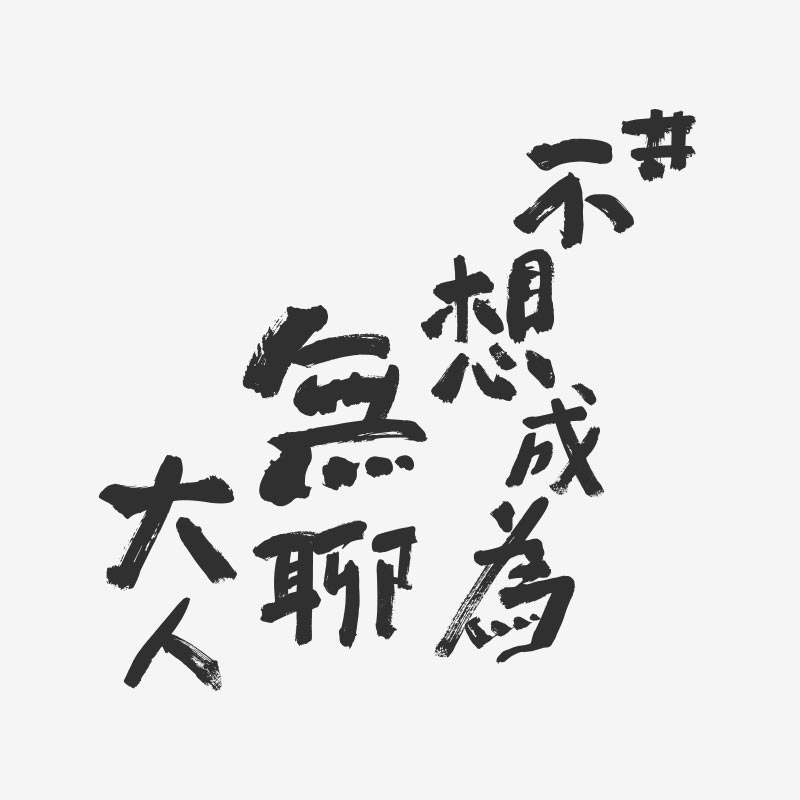 #不想成為
無聊
大人